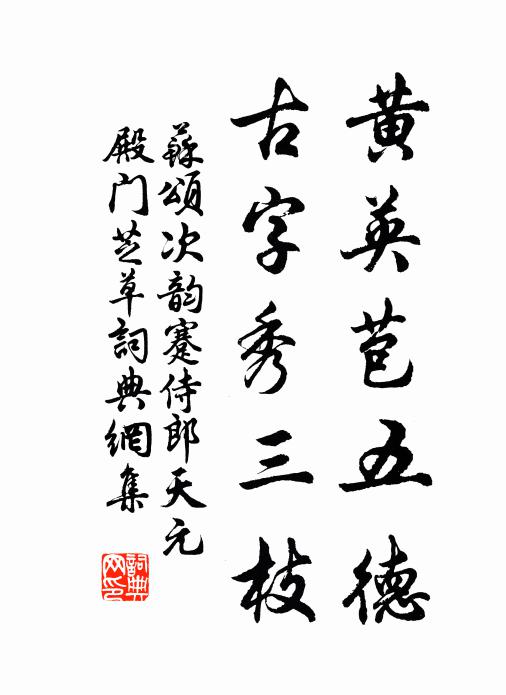 黄英苞五德
古字秀三枝
蘇頌次韵蹇侍郎天元
殿门芝草詞典網集
詞典网印